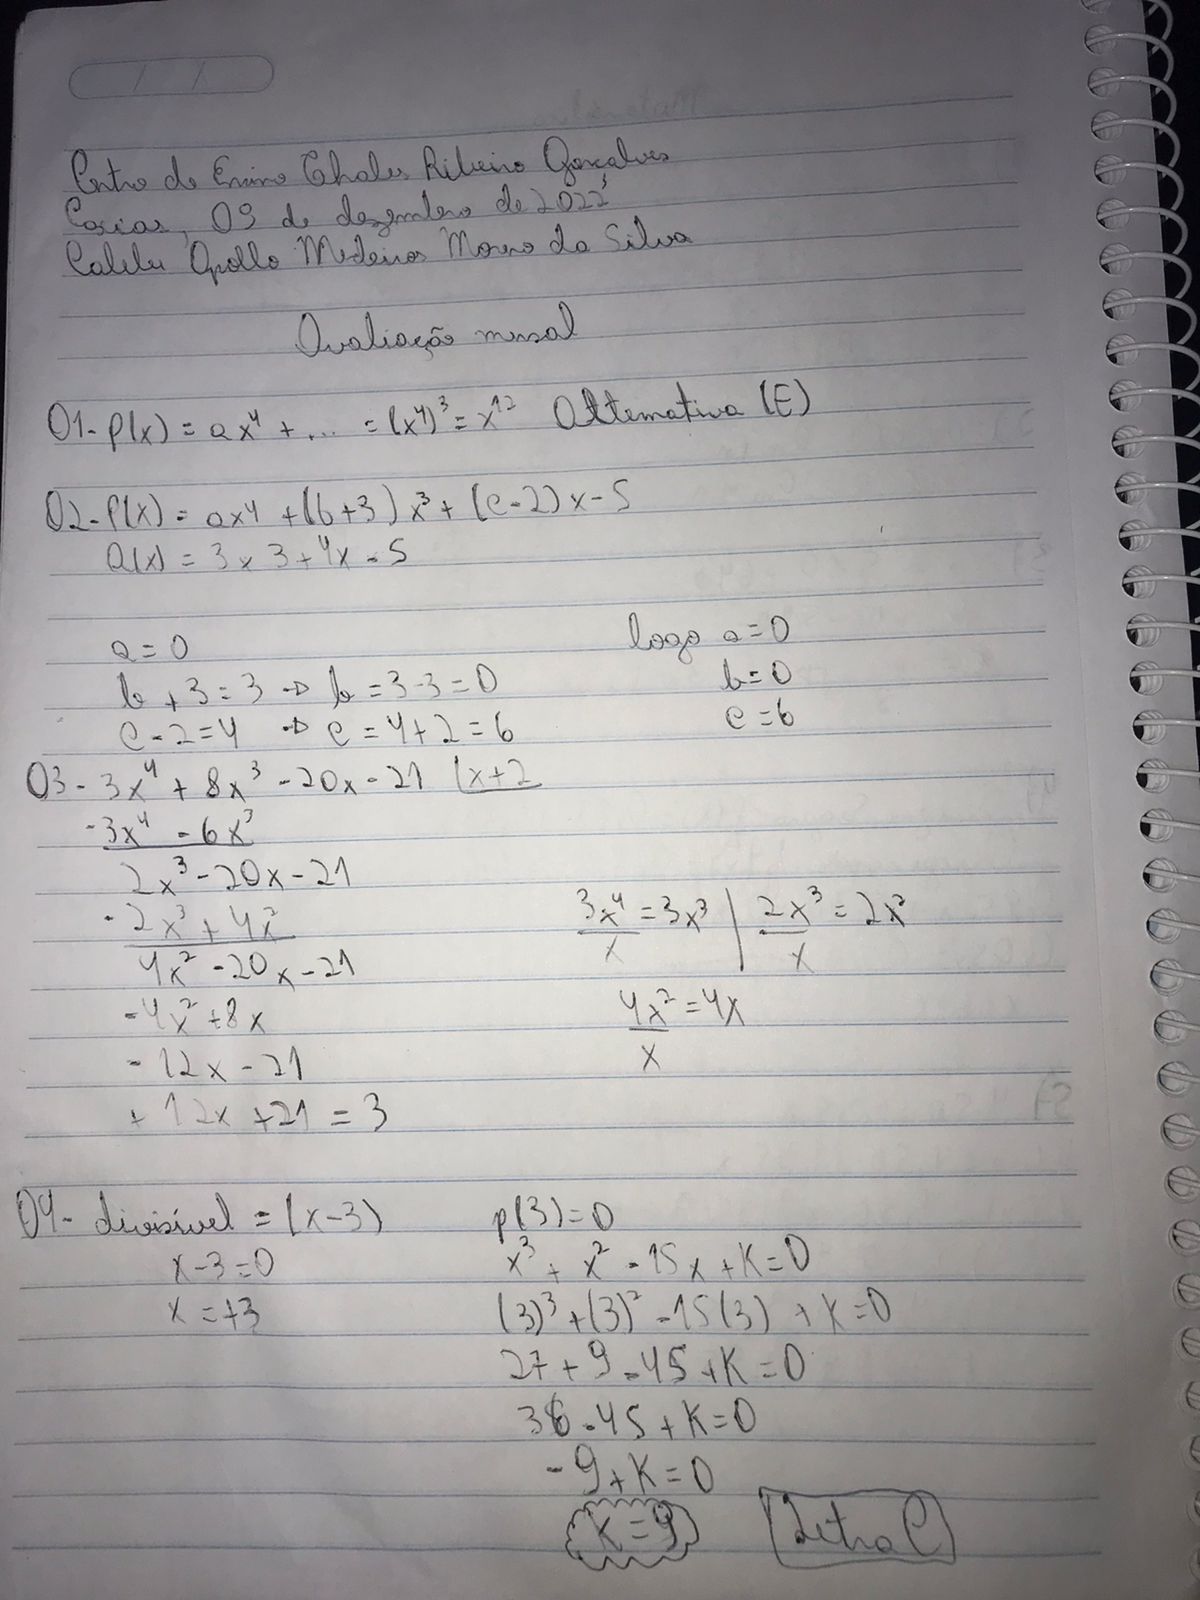 Centro de Ensino Thales Ribeiro Gonçalves
Caxias, 09 de dezembro de 2022
Calebe Apollo Medeiros Moreno da Silva
Avaliação mensal
01- P(x) = ax⁴ + ... = (x⁴)³ = x¹² Alternativa (E)
02- P(x) = ax4 + (b+3) x³ + (c-2) x - 5
Q(x) = 3x3 + 4x - 5
a = 0 logo a = 0
b + 3 = 3 → b = 3-3 = 0 b = 0
c - 2 = 4 → c = 4 + 2 = 6 c = 6
03- 3x⁴ + 8x³ - 20x - 21 | x+2
-3x⁴ - 6x³
2x³ - 20x - 21
-2x³ + 4x² 3x⁴/x = 3x³ | 2x³/x = 2x²
4x² - 20x - 21
-4x² + 8x 4x²/x = 4x
- 12x - 21
+ 12x + 21 = 3
04- divisível = (x-3) p(3) = 0
x-3=0 x³ + x² - 15x + K = 0
x = +3 (3)³ + (3)² - 15(3) + K = 0
27 + 9 - 45 + K = 0
36 - 45 + K = 0
- 9 + K = 0
K = 9 Letra C